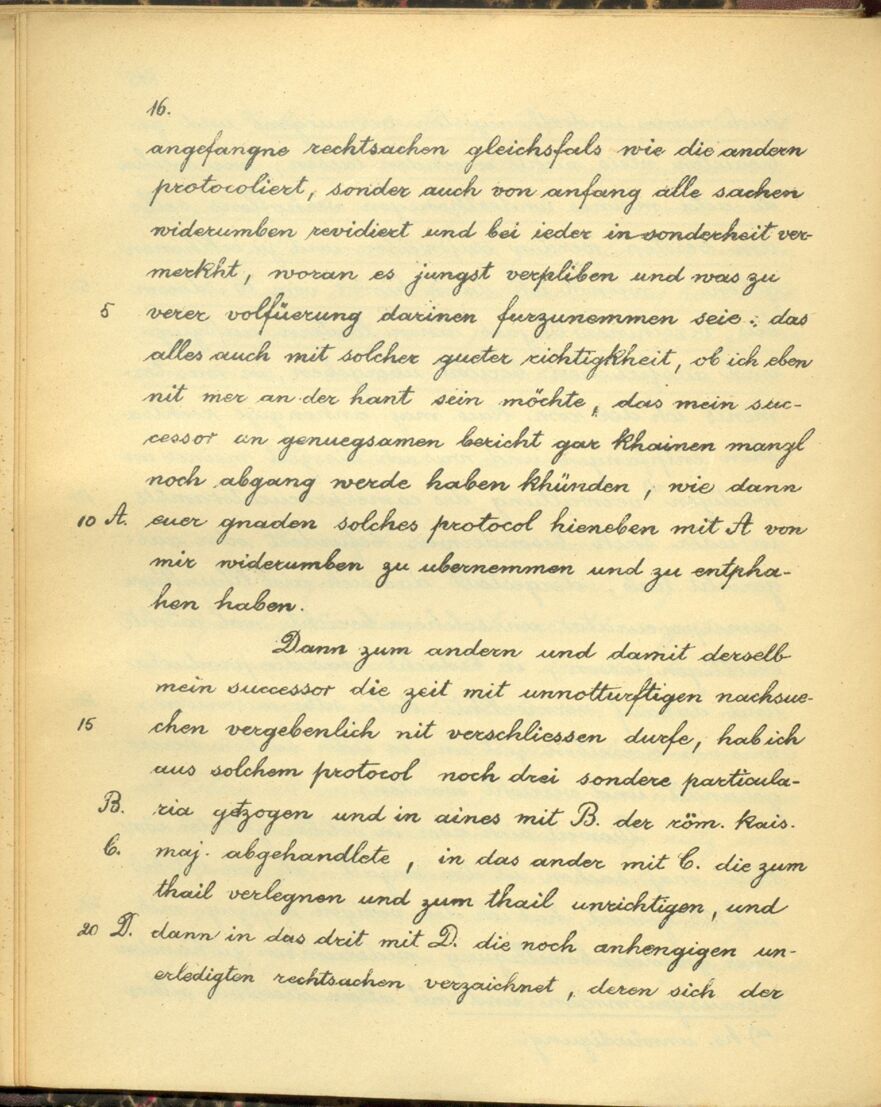 16.
angefangne rechtsachen gleichsfals wie die andern
protocoliert, sonder auch von anfang alle sachen
widerumben revidiert und bei ieder in sonderheit ver-
merkht, woran es jungst verpliben und was zu
5 verer volfüerung darinen furzunemmen seie; das
alles auch mit solcher gueter richtigkheit, ob ich eben
nit mer an der hant sein möchte, das mein suc-
cessor an genuegsamen bericht gar khainen manzl
noch abgang werde haben khünden, wie dann
10 A. euer gnaden solches protocol hieneben mit A von
mir widerumben zu ubernemmen und zu entpha-
hen haben.
Dann zum andern und damit derselb
mein successor die zeit mit unnotturftigen nachsue-
15 chen vergebenlich nit verschliessen durfe, hab ich
aus solchem protocol noch drei sondere particula-
B. ria gezogen und in aines mit B. der röm. kais.
C. maj. abgehandlete, in das ander mit C. die zum
thail verlegnen und zum thail unrichtigen, und
20 D. dann in das drit mit D. die noch anhengigen un-
erledigten rechtsachen verzaichnet, deren sich der